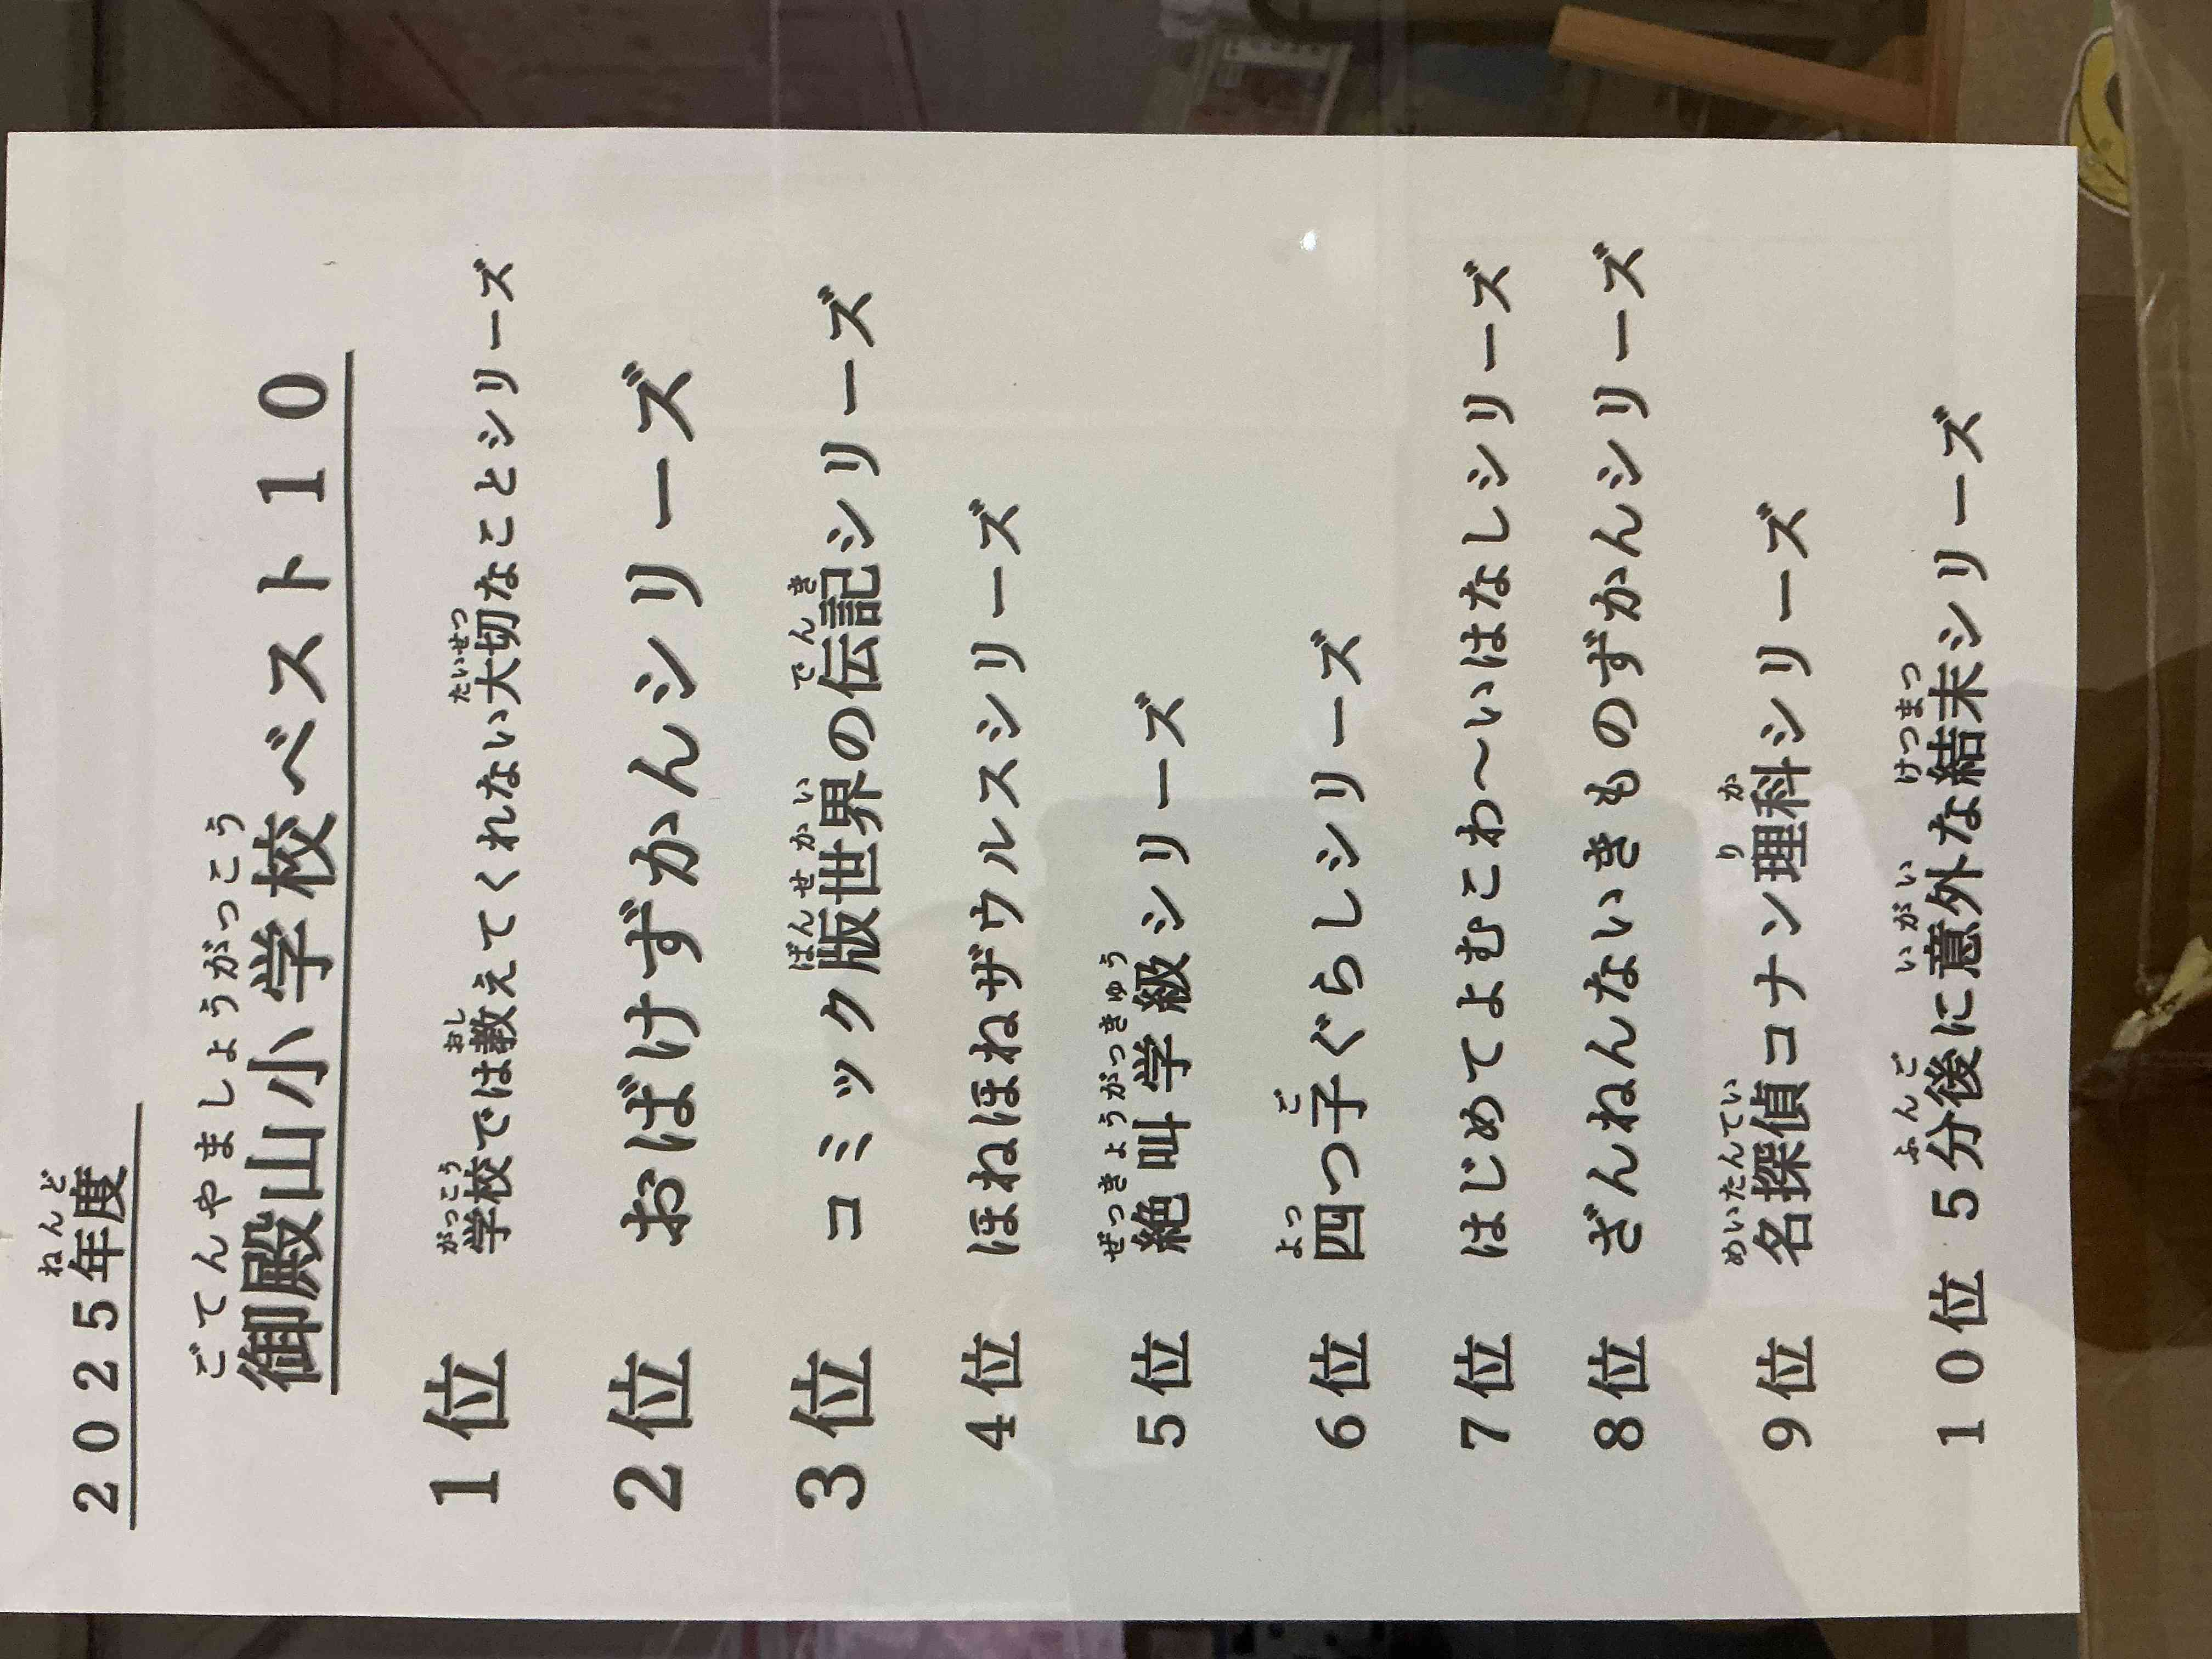 ２０２５年度
御殿山小学校ベスト１０
１位 学校では教えてくれない大切なことシリーズ
２位 おばけずかんシリーズ
３位 コミック版世界の伝記シリーズ
４位 ほねほねザウルスシリーズ
５位 絶叫学級シリーズ
６位 四つ子ぐらしシリーズ
７位 はじめてよむこわ～いはなしシリーズ
８位 ざんねんないきものずかんシリーズ
９位 名探偵コナン理科シリーズ
１０位 ５分後に意外な結末シリーズ